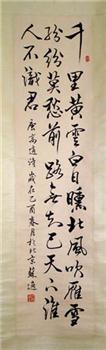 千里黄雲白日曛北風吹雁雪
紛紛莫愁前路無知己天下誰
人不識君 唐高適詩 歲在乙酉春月於北京蘇適